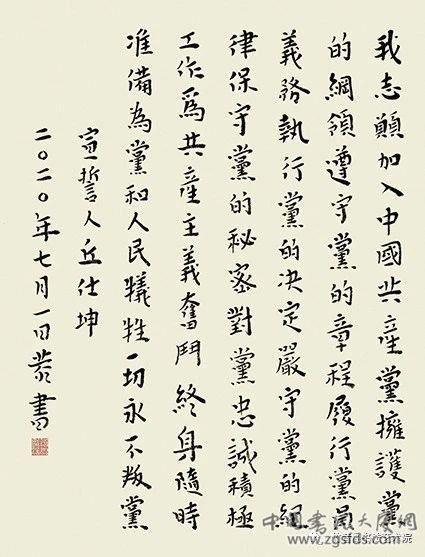 我志願加入中國共產黨擁護黨
的綱領遵守黨的章程履行黨員
義務執行黨的决定嚴守黨的紀
律保守黨的秘密對黨忠誠積極
工作爲共產主義奮鬥終身隨時
准備為黨和人民犧牲一切永不叛黨
宣誓人丘仕坤
二〇二〇年七月一日恭書
中国书法大度网
www.zgsfds.com